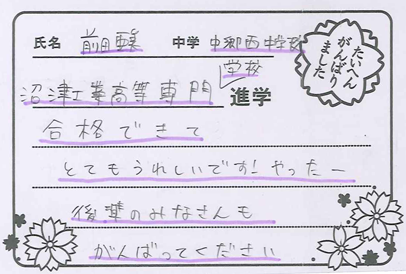 氏名 前田 中学 中郷西中学校
たいへん
がんばり
ました
沼津工業高等専門学校 進学
合格できて
とてもうれしいです!やったー
後輩のみなさんも
がんばってください